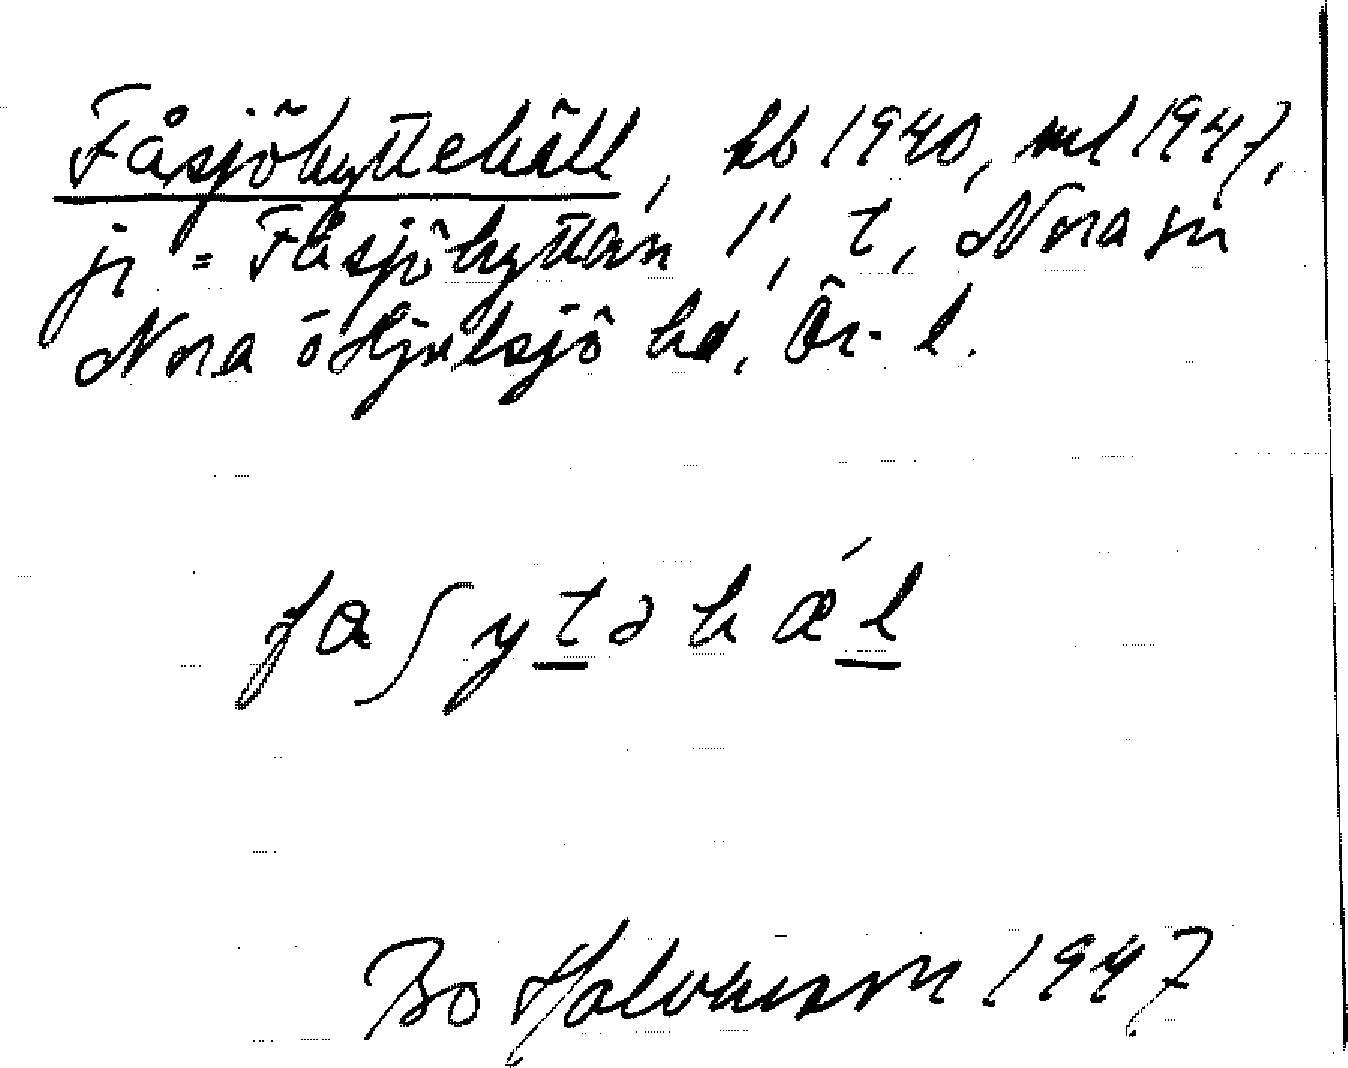 Fåsjöhyttehäll, kb 1940, ml 1947,
jr = Fåsjöhyttan 1', t, Nora sn
Nora o Hjulsjö hd, Ör. l.
faʃytəhǽl
Bo 1947